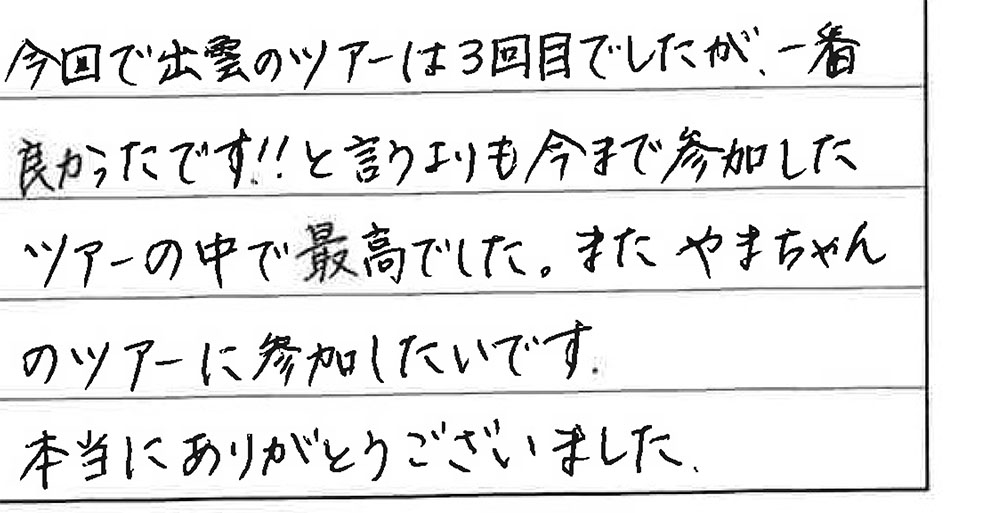 今回で出雲のツアーは3回目でしたが、一番
良かったです!!と言うよりも今まで参加した
ツアーの中で最高でした。また やまちゃん
のツアーに参加したいです.
本当にありがとうございました.